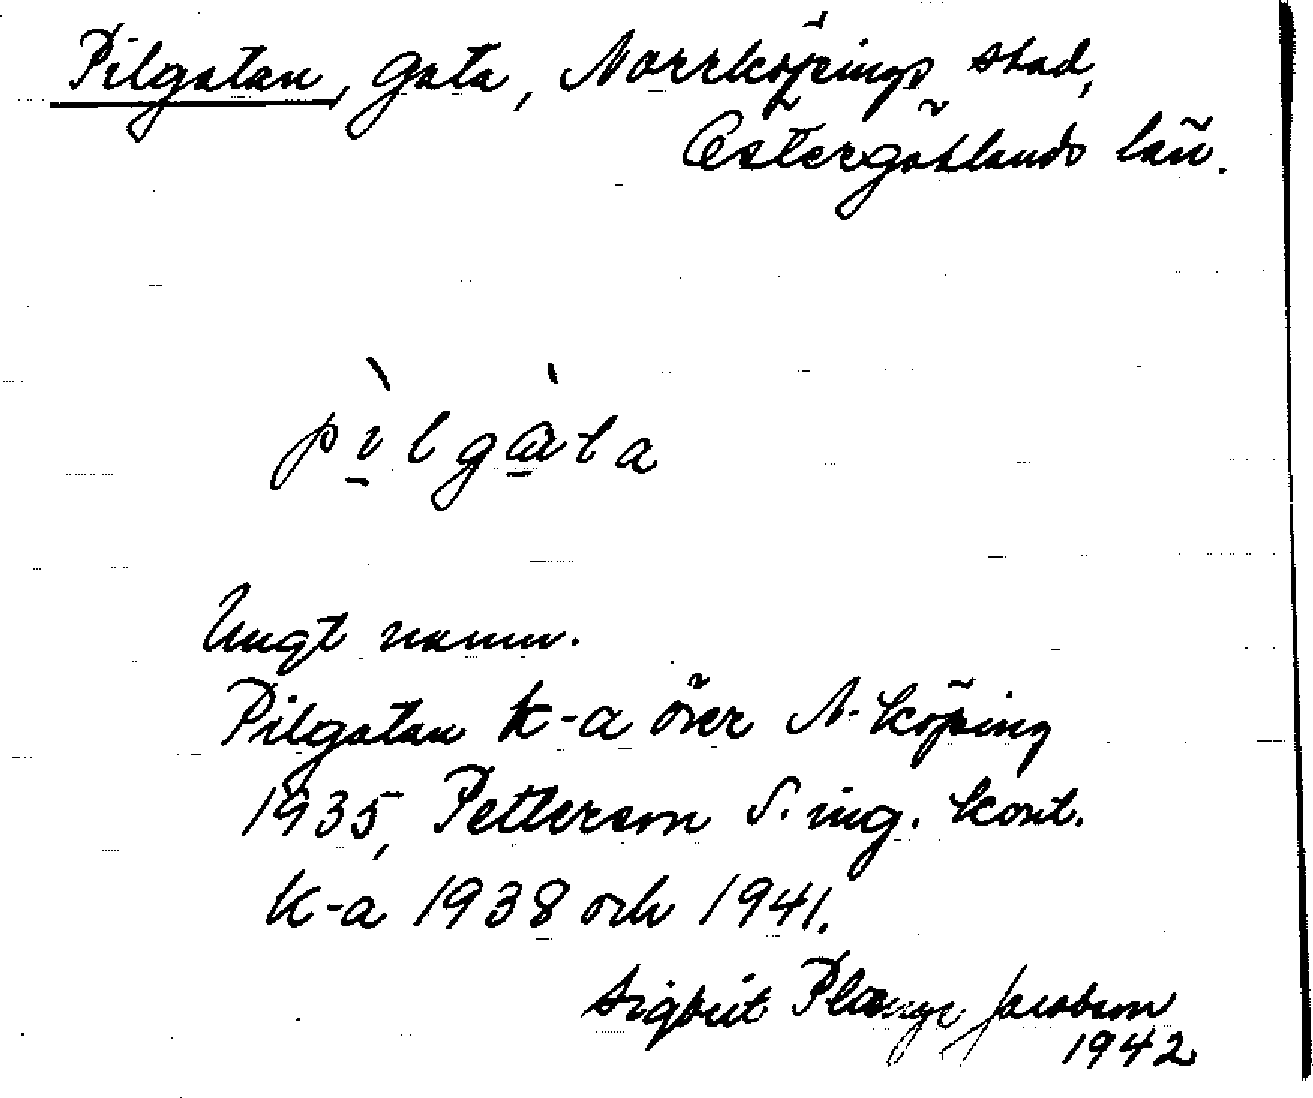 Pilgatan, gata, Norrköpings stad,
Östergötlands län.
pìlgàta
Ungt namn.
Pilgatan K-a över N-köping
1935, Petterson S. ing. kont.
K-a 1938 och 1941.
Sigbrit Plænge Jacobson
1942